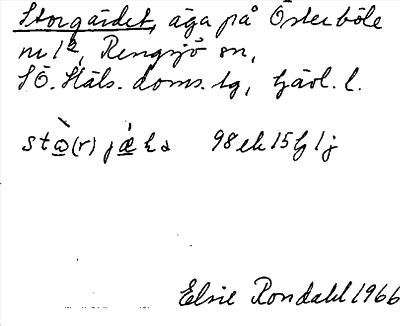 Storgärdet, äga på Österböle
nr 1², Rengsjö sn,
SÖ. Häls. doms. lg, Gävl. l.
sto(r) jæ
98 ek 15 lj
Elsie Rondahl 1966